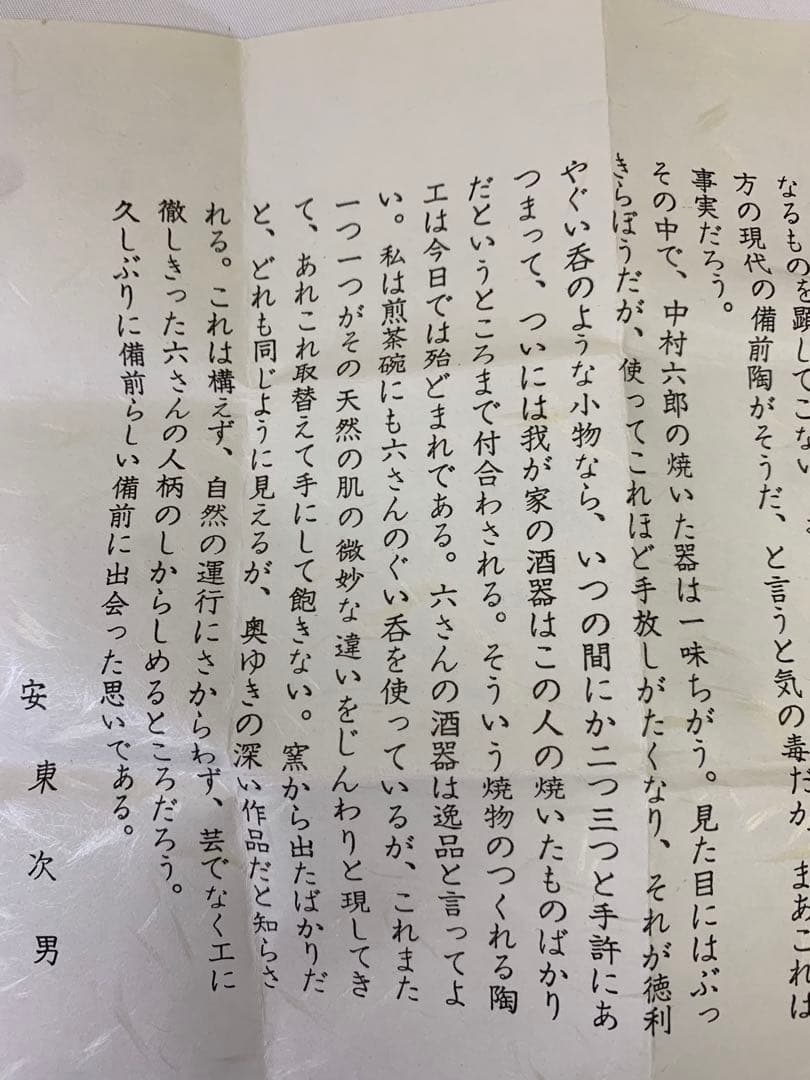 なるものを顕してこない
方の現代の備前陶がそうだ、と言うと気の毒だが、まあこれは
事実だろう。
その中で、中村六郎の焼いた器は一味ちがう。見た目にはぶっ
きらぼうだが、使ってこれほど手放しがたくなり、それが徳利
やぐい呑のような小物なら、いつの間にか二つ三つと手許にあ
つまって、ついには我が家の酒器はこの人の焼いたものばかり
だというところまで付合わされる。そういう焼物のつくれる陶
工は今日では殆どまれである。六さんの酒器は逸品と言ってよ
い。私は煎茶碗にも六さんのぐい呑を使っているが、これまた
一つ一つがその天然の肌の微妙な違いをじんわりと現してき
て、あれこれ取替えて手にして飽きない。窯から出たばかりだ
と、どれも同じように見えるが、奥ゆきの深い作品だと知らさ
れる。これは構えず、自然の運行にさからわず、芸でなく工に
徹しきった六さんの人柄のしからしめるところだろう。
久しぶりに備前らしい備前に出会った思いである。
安東次男